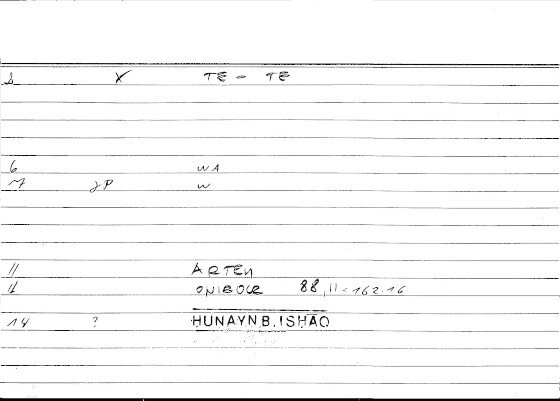 X TE - TE
6 WA
7 JP W
11 ARTEN
88,11-162.16
14 ? HUNAYN B. ISHAQ